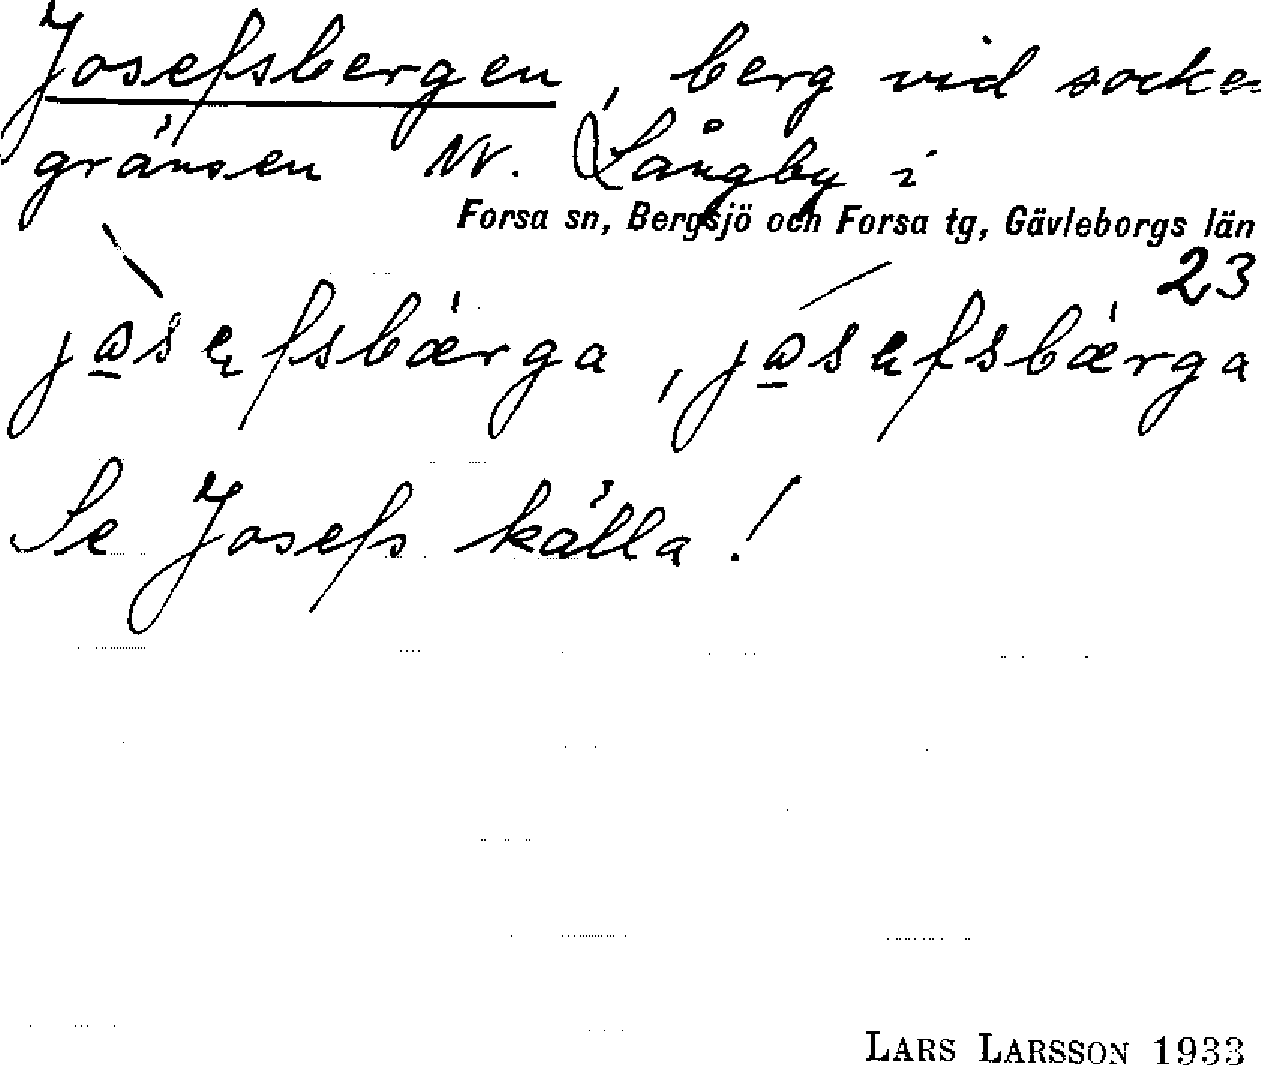 Josefsbergen, berg vid socke
gränsen NV. Långby i
Forsa sn, Bergsjö och Forsa tg, Gävleborgs län
23
Se Josefs källa!
LARS LARSSON 1933